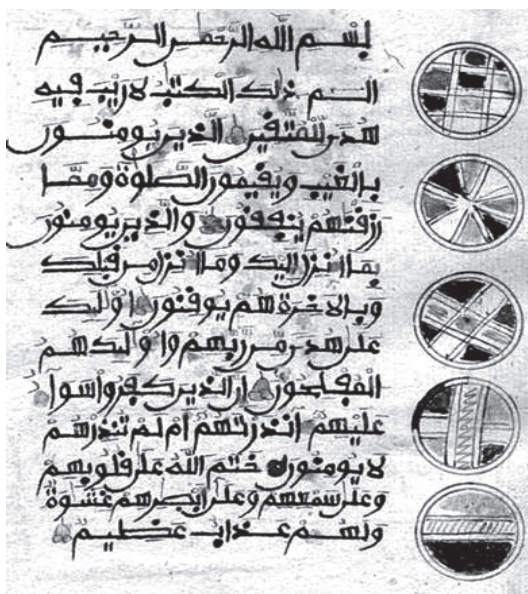 بسم الله الرحمن الرحيم
الم ذلك الكتب لا ريب فيه
هدى للمتقين الذين يومنون
بالغيب ويقيمون الصلوة ومما
رزقنهم ينفقون والذين يومنون
بما انزل اليك وما انزل من قبلك
وبالاخرة هم يوقنون اولئك
على هدى من ربهم واولئك هم
المفلحون ان الذين كفروا سوا
عليهم آنذرتهم ام لم تنذرهم
لا يومنون ختم الله على قلوبهم
وعلى سمعهم وعلى ابصرهم غشوة
ولهم عذاب عظيم